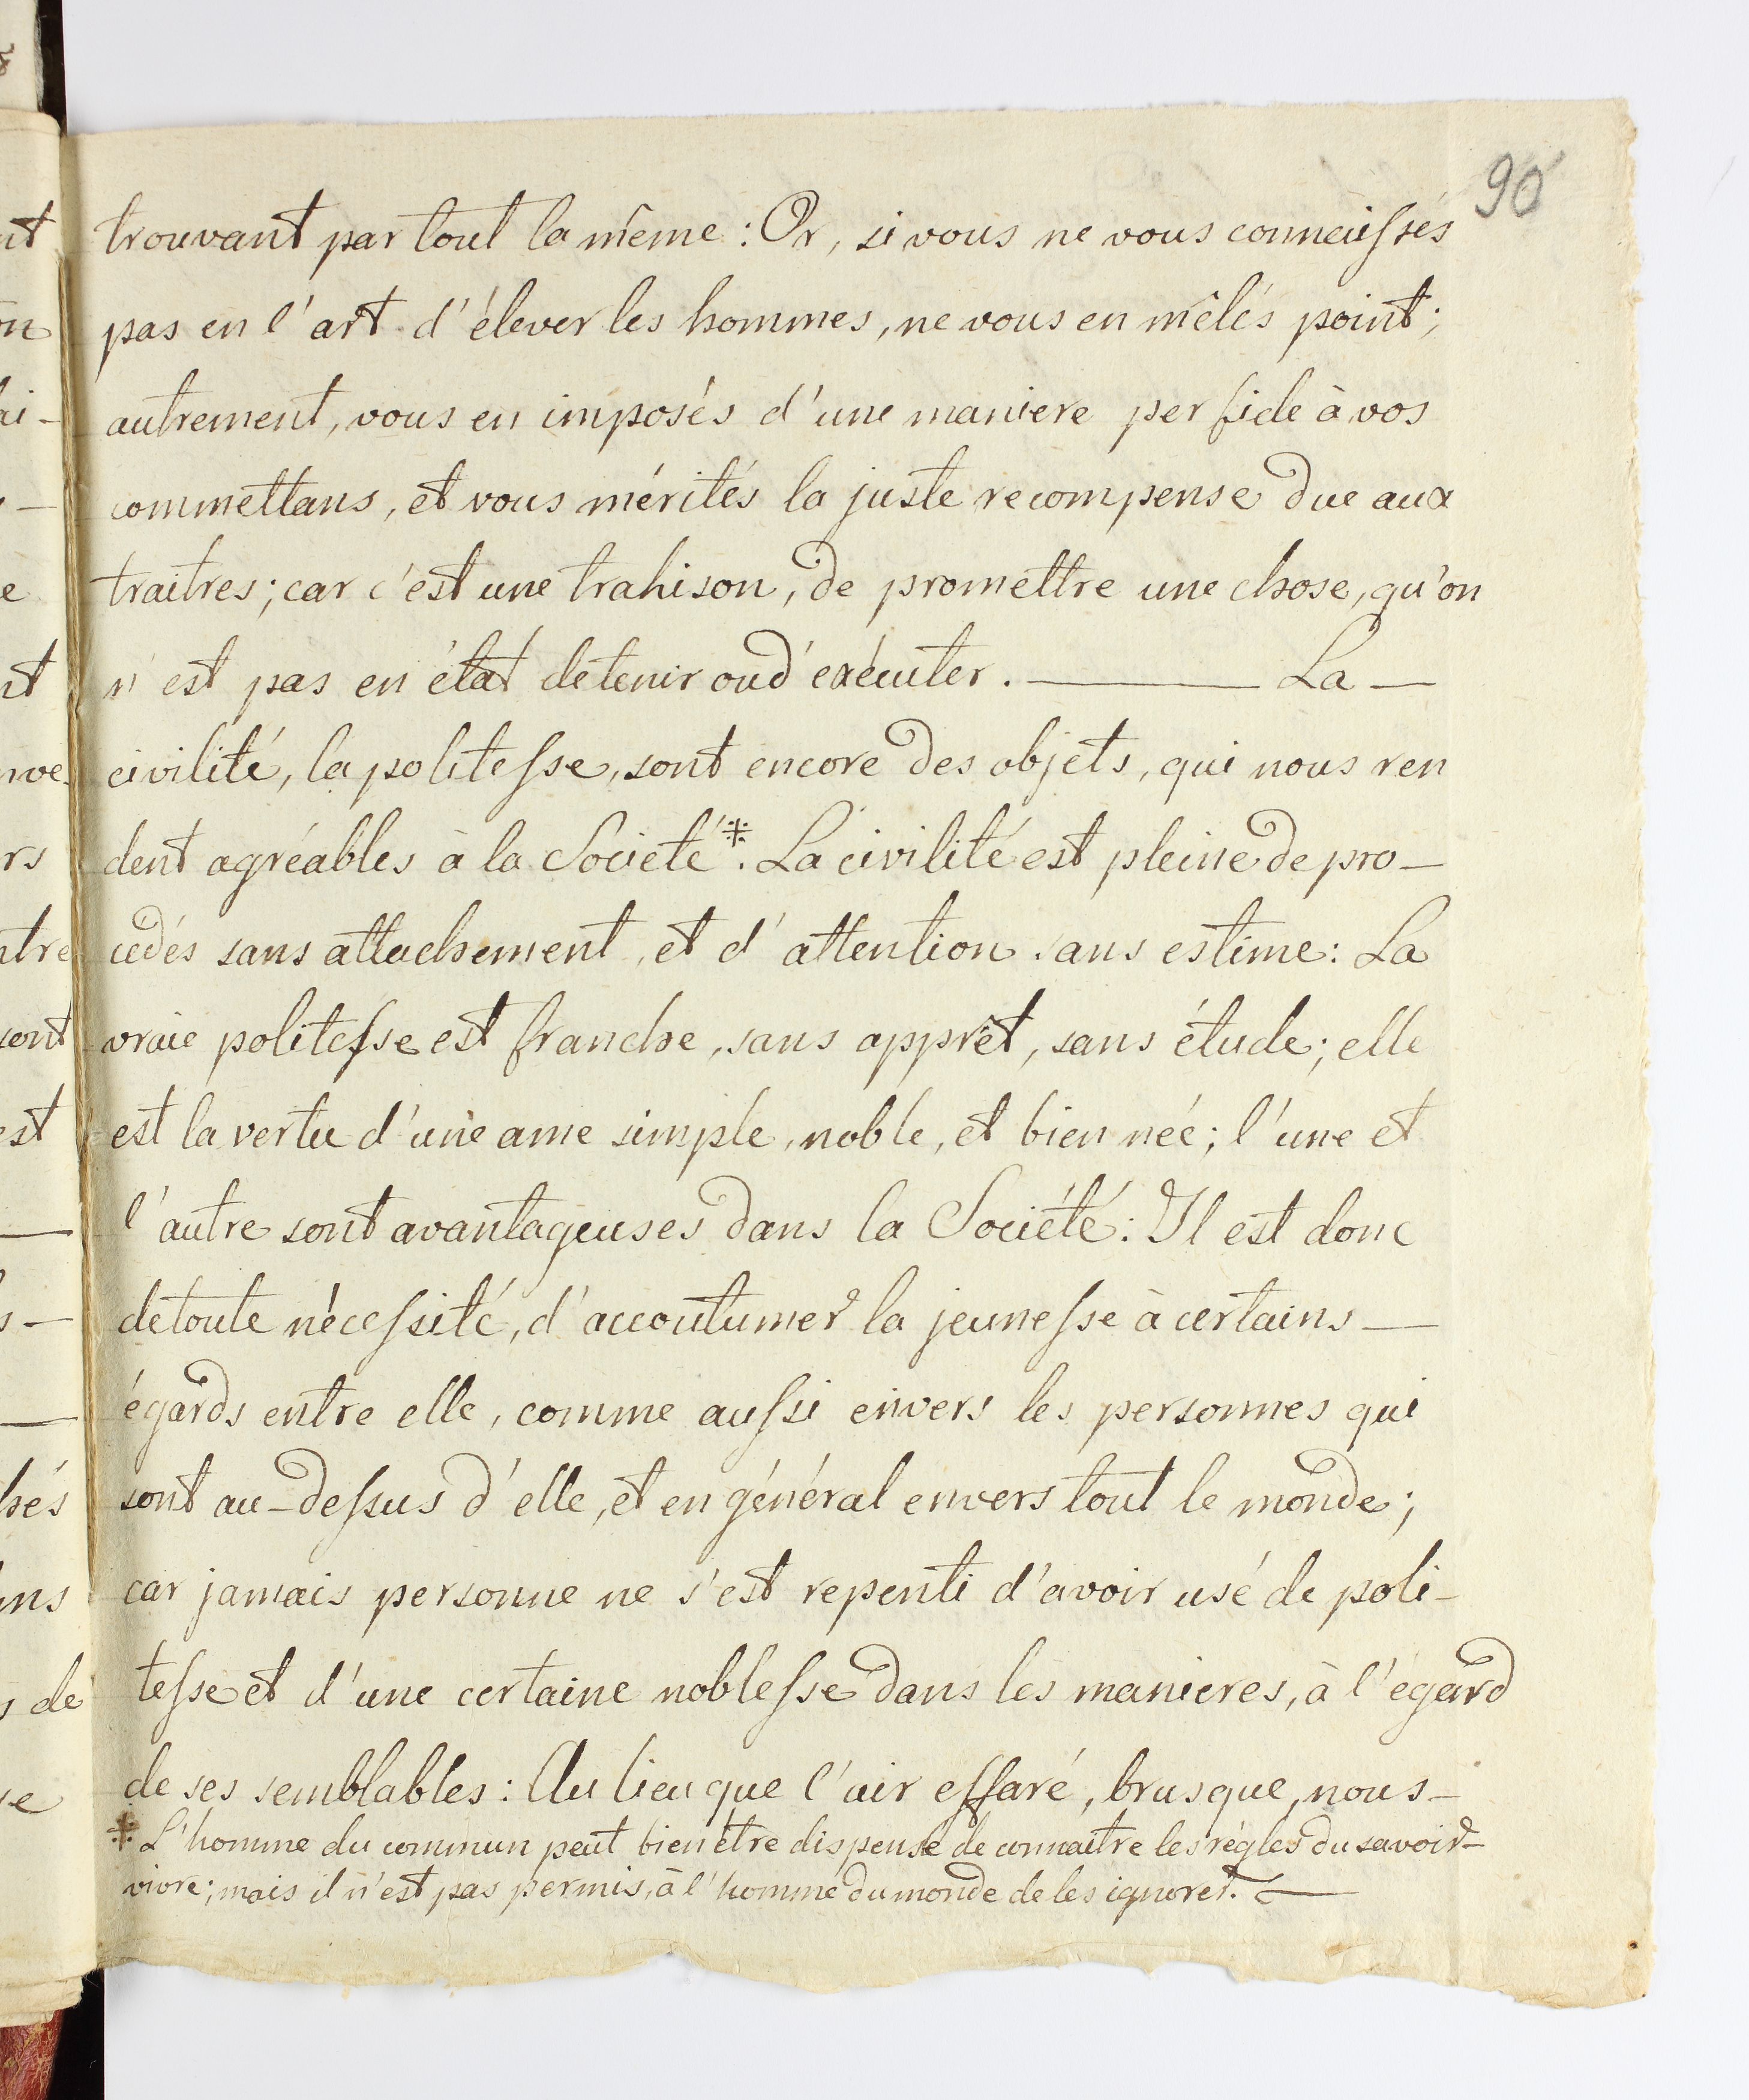 90
trouvant par tout la même : Or, si vous ne vous connaissés
pas en l'art d'élever les hommes, ne vous en mêlés point;
autrement, vous en imposés d'une maniere perfide à vos
commettans, et vous mérités la juste recompense due aux
traitres; car c'est une trahison, de promettre une chose, qu'on
n'est pas en état de tenir ou d'exécuter. — La —
civilité, la politesse, sont encore des objets, qui nous ren
dent agréables à la Societé*. La civilité est pleine de pro-
cédés sans attachement, et d'attention sans estime: La
vraie politesse est franche, sans apprêt, sans étude; elle
est la vertu d'une ame simple, noble, et bien née; l'une et
l'autre sont avantageuses dans la Société: Il est donc
de toute nécessité, d'accoutumer la jeunesse à certains —
égards entre elle, comme aussi envers les personnes qui
sont au-dessus d'elle, et en général envers tout le monde;
car jamais personne ne s'est repenti d'avoir usé de poli-
tesse et d'une certaine noblesse dans les manieres, à l'égard
de ses semblables: Au lieu que l'air effaré, brusque, nous-
* L'homme du commun peut bien être dispensé de connaitre les régles du savoir-
vivre; mais il n'est pas permis, à l'homme du monde de les ignorer. —